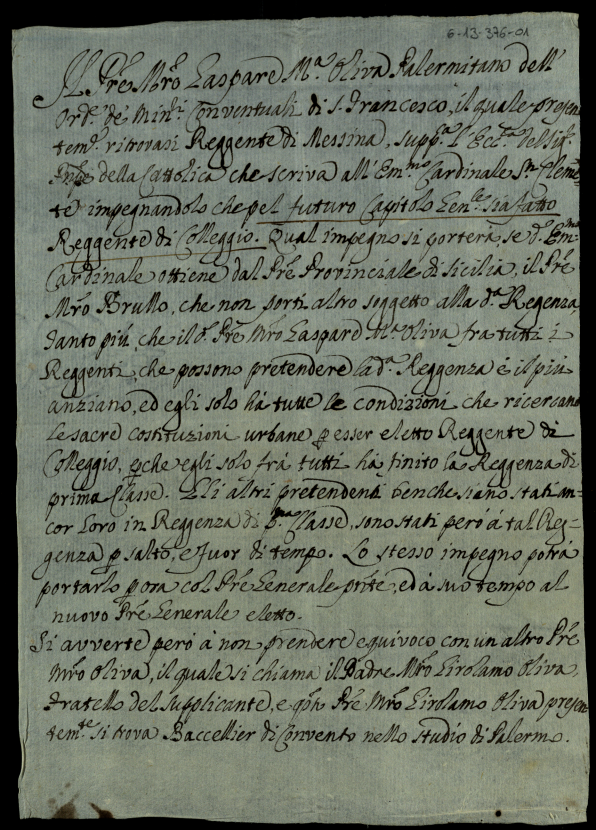 6-13-376-01
Il Pre Mro Gaspare Ma. Oliva Palermitano dell'
Ord.e de Min.i Conventuali di S. Francesco, il quale presen
tem.e ritrovasi Reggente di Messina, supp.a l'Ecc.a del Sig.r
Pnpe della Cattolica che scriva all'Em.mo Cardinale Sn. Cleme
te impegnandolo che pel futuro Capitolo Gen.le sia fatto
Reggente di Colleggio. Qual impegno si porterà, se d.o Em.mo
Cardinale ottiene dal Pre Provinciale di Sicilia, il Pre
Mro Brullo, che non porti altro soggetto alla d.a Regenza
tanto più, che il d.o Pre Mro Gaspare Ma. Oliva fra tutti i
Reggenti, che possono pretendere la d.a Reggenza è il più
anziano, ed egli solo hà tutte le condizioni che ricercano
le sacre costituzioni urbane p esser eletto Reggente di
Colleggio, pche egli solo frà tutti hà finito la Reggenza di
prima Classe. Gli altri pretendenti benche siano stati an-
cor loro in Reggenza di p.ma Classe, sono stati però à tal Reg=
genza p salto, e fuor di tempo. Lo stesso impegno potrà
portarlo p ora col Pre Generale pnte, ed à suo tempo al
nuovo Pre Generale eletto.
Si avverte però à non prendere equivoco con un altro Pre
Mro Oliva, il quale si chiama il Padre Mro Girolamo Oliva
fratello del supplicante, e qsto Pre Mro Girolamo Oliva presen
tem.te si trova Baccellier di Convento nello studio di Palermo.